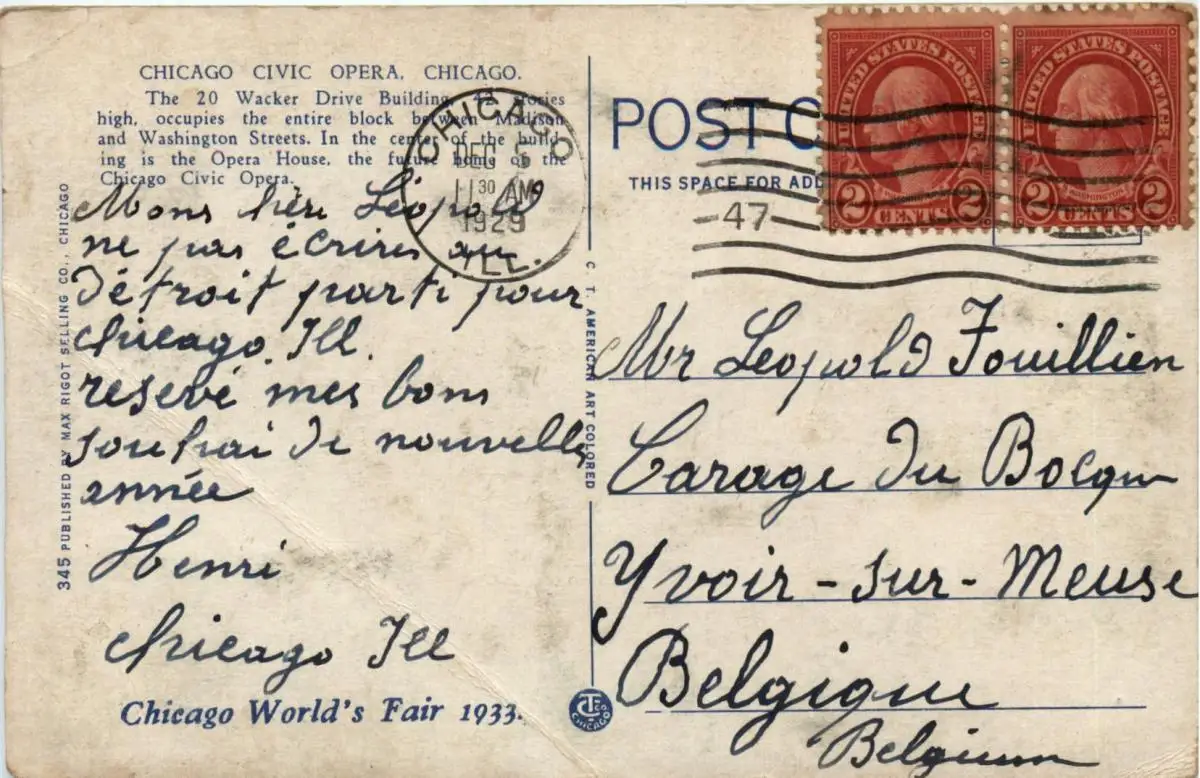 CHICAGO CIVIC OPERA, CHICAGO.
The 20 Wacker Drive Building, 42 stories
high, occupies the entire block between Madison
and Washington Streets. In the center of the build-
ing is the Opera House, the future home of the
Chicago Civic Opera.
CHICAGO
DEC 5
11 30 AM
1929
ILL.
POST C
THIS SPACE FOR ADD
47
UNITED STATES POSTAGE
2 CENTS 2
UNITED STATES POSTAGE
WASHINGTON
2 CENTS 2
Mons Léopold
ne pas écrires au
Détroit parti pour
Chicago. Ill.
resevé mes bons
souhai de nouvelle
année
Henri
Chicago Ill
Chicago World's Fair 1933.
345 PUBLISHED BY MAX RIGOT SELLING CO., CHICAGO
C. T. AMERICAN ART COLORED
CHICAGO
Mr Leopold Fouillien
Garage Du Bocqu
Yvoir-sur-Meuse
Belgique
Belgium